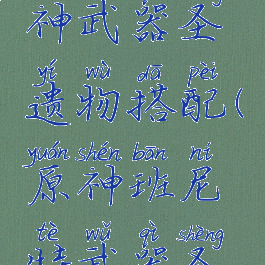 神武器圣
yí wù dā pèi
遗物搭配(
yuán shén bān ní
原神班尼
tè wǔ qì shèng
特武器圣